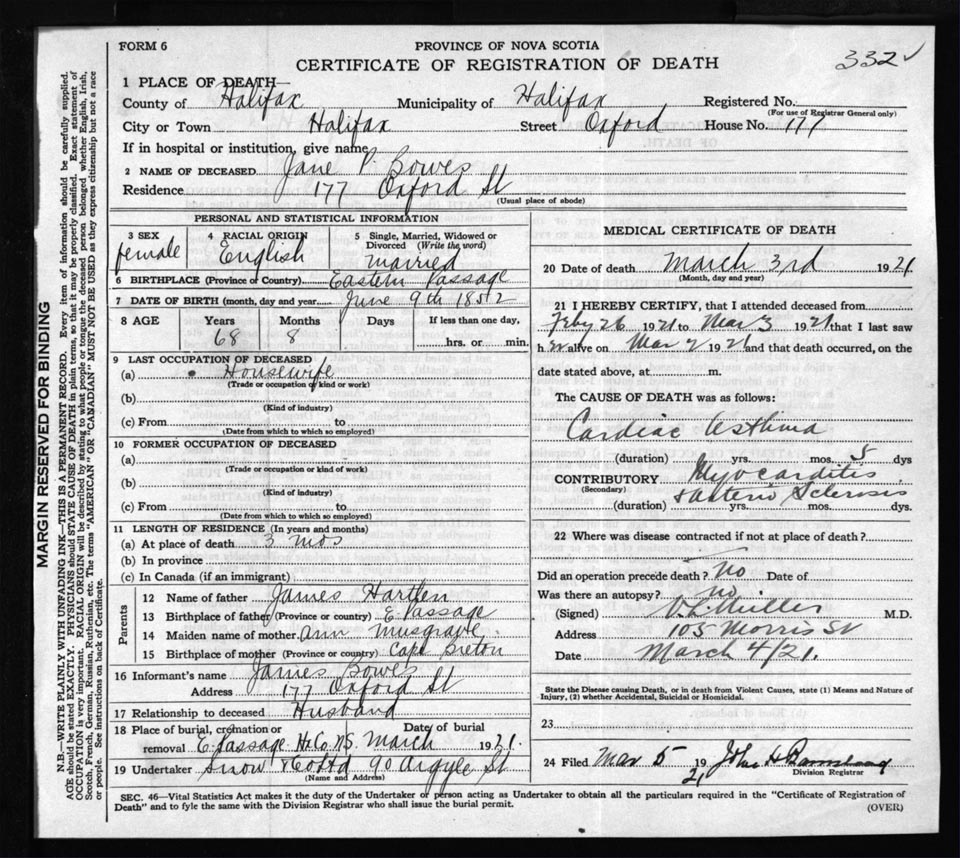 FORM 6
PROVINCE OF NOVA SCOTIA
CERTIFICATE OF REGISTRATION OF DEATH
332 ✓
1 PLACE OF DEATH—
County of Halifax Municipality of Halifax Registered No.
(For use of Registrar General only)
City or Town Halifax Street Oxford House No. 177
If in hospital or institution, give name
2 NAME OF DECEASED Jane P. Bowes
Residence 177 Oxford St
(Usual place of abode)
PERSONAL AND STATISTICAL INFORMATION
3 SEX female
4 RACIAL ORIGIN English
5 Single, Married, Widowed or Divorced (Write the word) married
6 BIRTHPLACE (Province or Country) Eastern Passage
7 DATE OF BIRTH (month, day and year) June 9th 1852
8 AGE Years Months Days If less than one day,
68 8 hrs. or min.
9 LAST OCCUPATION OF DECEASED
(a) Housewife
(Trade or occupation or kind or work)
(b)
(Kind of industry)
(c) From to
(Date from which to which so employed)
10 FORMER OCCUPATION OF DECEASED
(a)
(Trade or occupation or kind of work)
(b)
(Kind of industry)
(c) From to
(Date from which to which so employed)
11 LENGTH OF RESIDENCE (In years and months)
(a) At place of death 3 mos
(b) In province
(c) In Canada (if an immigrant)
Parents
12 Name of father James Hartlen
13 Birthplace of father (Province or country) E. Passage
14 Maiden name of mother Ann Musgrave
15 Birthplace of mother (Province or country) Cape Breton
16 Informant's name James Bowes
Address 177 Oxford St
17 Relationship to deceased Husband
18 Place of burial, cremation or removal E. Passage Hx. Co. N.S. Date of burial March 1921.
19 Undertaker Snow & Co Ltd 90 Argyle St
(Name and Address)
MEDICAL CERTIFICATE OF DEATH
20 Date of death March 3rd 1921
(Month, day and year)
21 I HEREBY CERTIFY, that I attended deceased from
Feby 26 1921 to Mar 3 1921 that I last saw
her alive on Mar 2 1921 and that death occurred, on the
date stated above, at m.
The CAUSE OF DEATH was as follows:
Cardiac Asthma
(duration) yrs. mos. 5 dys
CONTRIBUTORY Myocarditis
(Secondary) & Arterio Sclerosis
(duration) yrs. mos. dys.
22 Where was disease contracted if not at place of death?
Did an operation precede death? No Date of
Was there an autopsy? no
(Signed) M.D.
Address 105 Morris St
Date March 4/21.
State the Disease causing Death, or in death from Violent Causes, state (1) Means and Nature of
Injury, (2) whether Accidental, Suicidal or Homicidal.
23
24 Filed Mar 5 1921 John H
Division Registrar
SEC. 46—Vital Statistics Act makes it the duty of the Undertaker or person acting as Undertaker to obtain all the particulars required in the "Certificate of Registration of
Death" and to fyle the same with the Division Registrar who shall issue the burial permit.
(OVER)
MARGIN RESERVED FOR BINDING
N.B.—WRITE PLAINLY WITH UNFADING INK—THIS IS A PERMANENT RECORD. Every item of information should be carefully supplied.
AGE should be stated EXACTLY. PHYSICIANS should STATE CAUSE OF DEATH in plain terms, so that it may be properly classified. Exact statement of
OCCUPATION is very important. RACIAL ORIGIN will be described by stating to what people or tongue the deceased person belonged whether English, Irish,
Scotch, French, German, Russian, Ruthenian, etc. The terms "AMERICAN" OR "CANADIAN" MUST NOT BE USED as they express citizenship but not a race
or people. See instructions on back of Certificate.